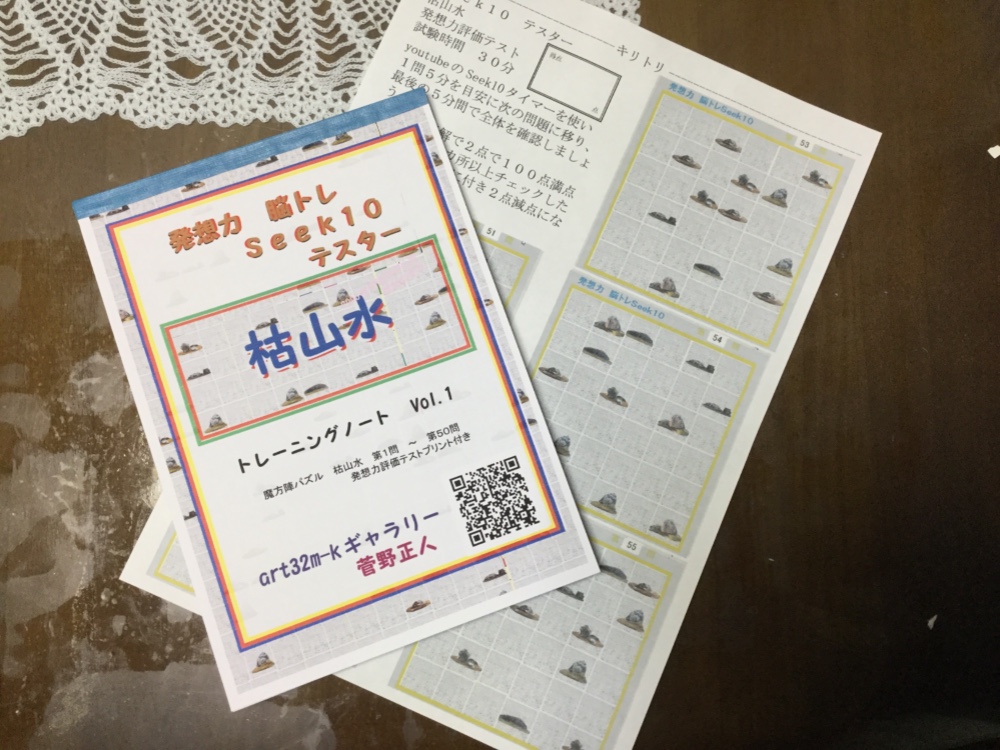 発想力 脳トレ
Seek10
テスター
枯山水
トレーニングノート Vol.1
魔方陣パズル 枯山水 第1問 ～ 第50問
発想力評価テストプリント付き
art32m-kギャラリー
菅野正人
eek10 テスター
キリトリ
枯山水
発想力評価テスト
試験時間 30分
得点
点
youtubeのSeek10タイマーを使い
1問5分を目安に次の問題に移り、
最後の5分間で全体を確認しましょ
う
解で2点で100点満点
所以上チェックした
に付き2点減点にな
51
発想力 脳トレSeek10
53
発想力 脳トレSeek10
54
55